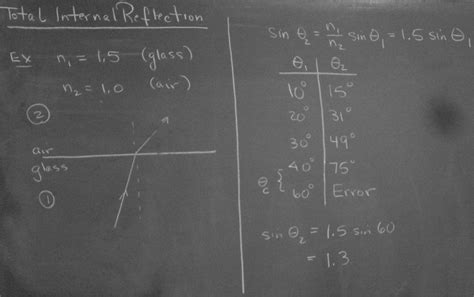 Total Internal Reflection
Ex n₁ = 1.5 (glass)
n₂ = 1.0 (air)
②
air
glass
①
sin θ₂ = n₁/n₂ sin θ₁ = 1.5 sin θ₁
θ₁ | θ₂
10° | 15°
20° | 31°
30° | 49°
40° | 75°
θc {
60° | Error
sin θ₂ = 1.5 sin 60
= 1.3